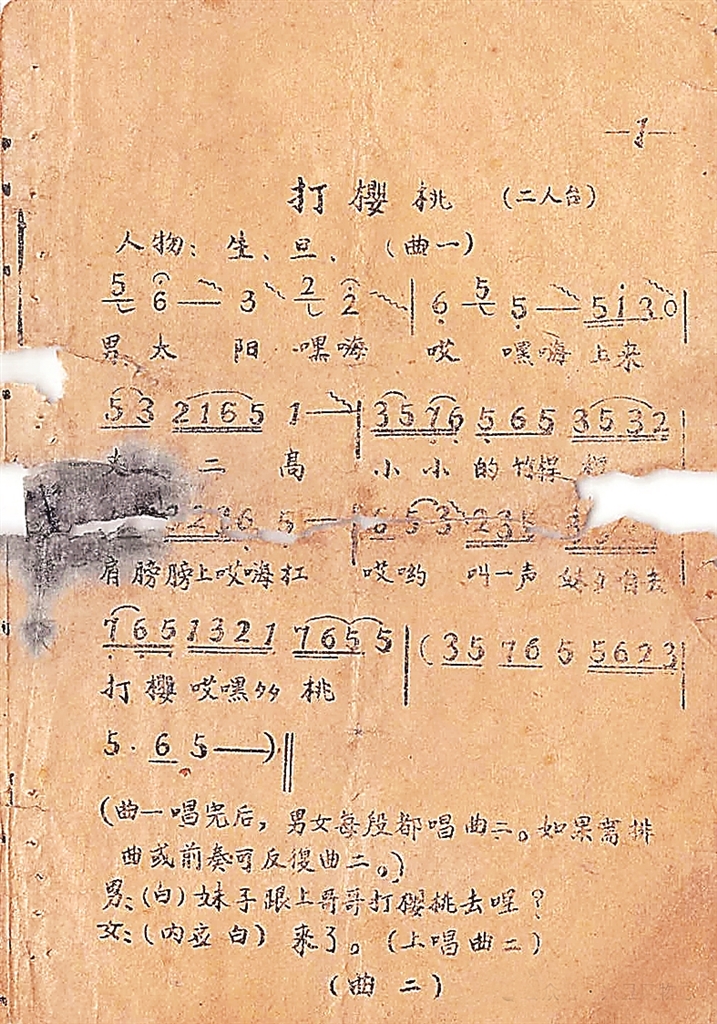 —1—
打櫻桃 (二人台)
人物: 生、旦、 (曲一)
5 6 — 3 2 2 | 6 5 5 — 5 i 3 0 |
男 太 阳 嘿嗨 哎 嘿嗨 上来
5 3 2 1 6 5 1 — | 3 5 7 6 5 6 5 3 5 3 2 |
二 高 小 小 的 竹桿
3 2 1 6 5 — | 6 5 3 2 3 5
肩膀膀上哎嗨扛 哎哟 叫一声 妹
7 6 5 1 3 2 1 7 6 5 5 | (3 5 7 6 5 5 6 2 3 |
打 櫻 哎嘿 桃
5 · 6 5 —) ‖
(曲一唱完后, 男女每段都唱曲二。如果需排
曲或前奏可反復曲二。)
男: (白) 妹子跟上哥哥打櫻桃去哩?
女: (内应白) 来了。(上唱曲二)
(曲 二)